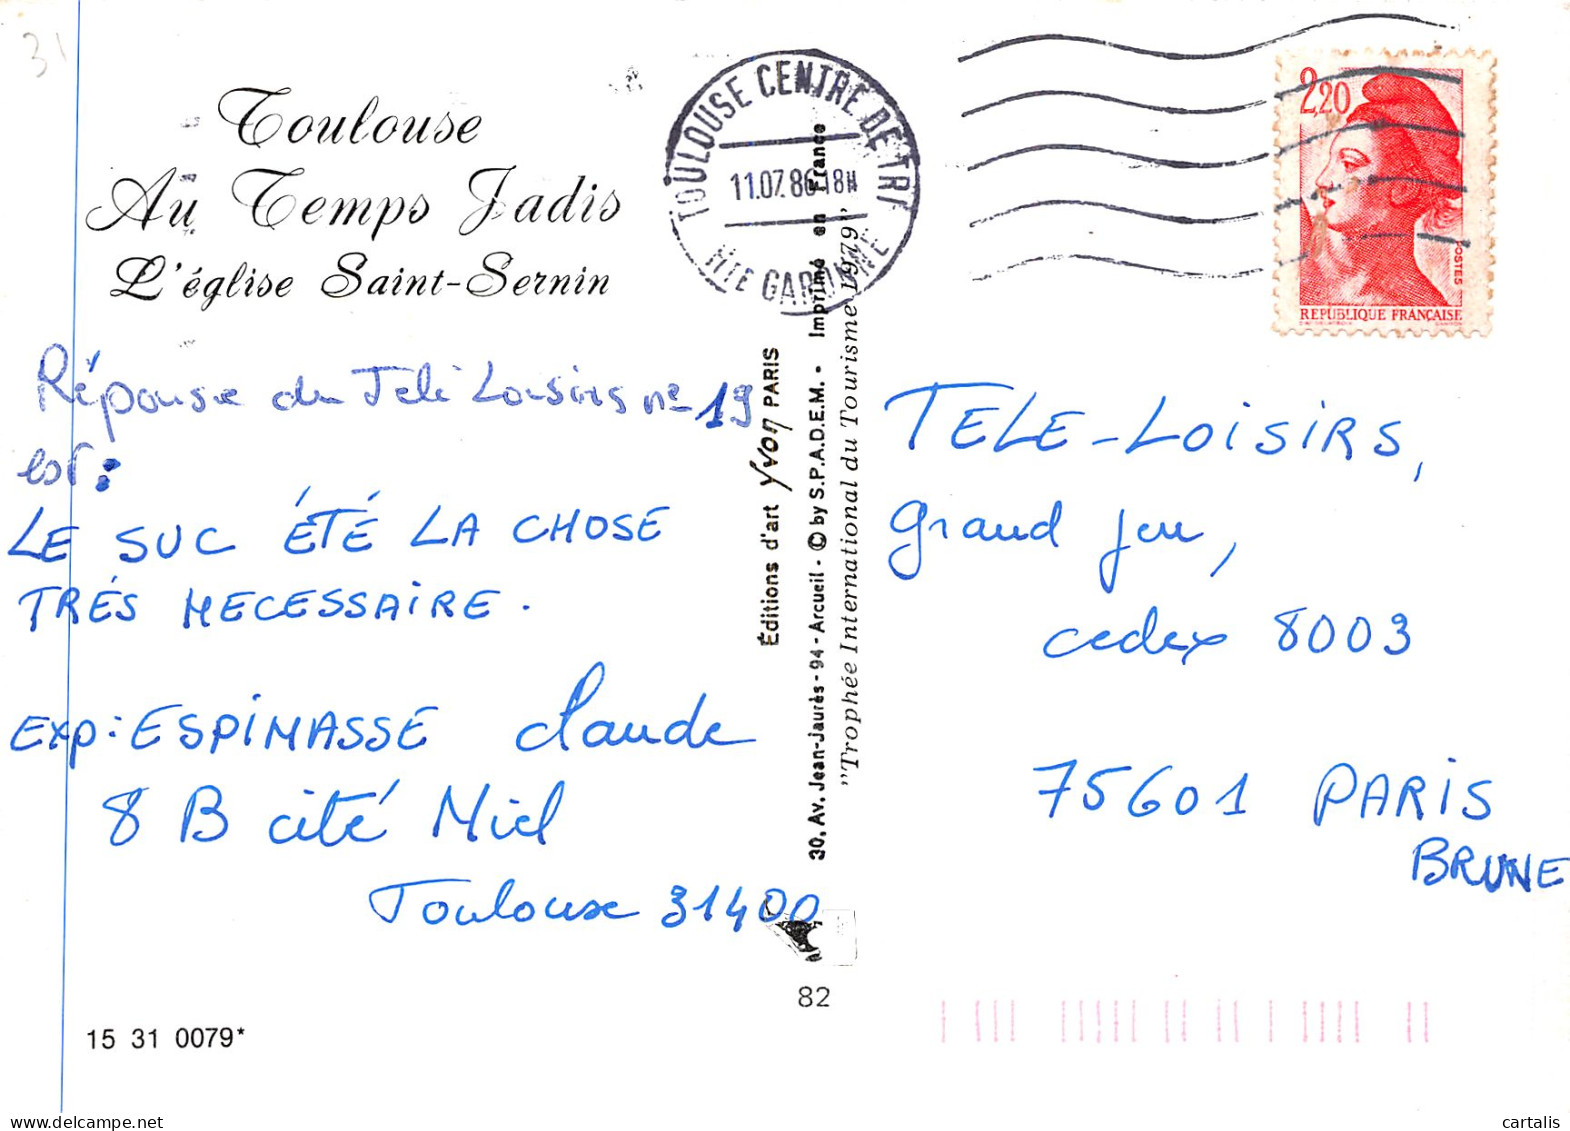 31
Toulouse
Au Temps Jadis
L'église Saint-Sernin
TOULOUSE CENTRE DE TRI
11.07.86 18H
HTE GARONNE
2,20
POSTES
REPUBLIQUE FRANÇAISE
Réponse du Télé Loisirs n° 19
est :
LE SUC ÉTÉ LA CHOSE
TRÉS NECESSAIRE.
Exp: ESPINASSE Claude
8 B cité Niel
Toulouse 31400
Éditions d'art YVON PARIS
30, Av. Jean-Jaurès - 94 - Arcueil - © by S.P.A.D.E.M. - Imprimé en France
"Trophée International du Tourisme 1979"
TELE-LOISIRS,
Grand jeu,
cedex 8003
75601 PARIS
BRUNE
82
15 31 0079*
cartalis.com